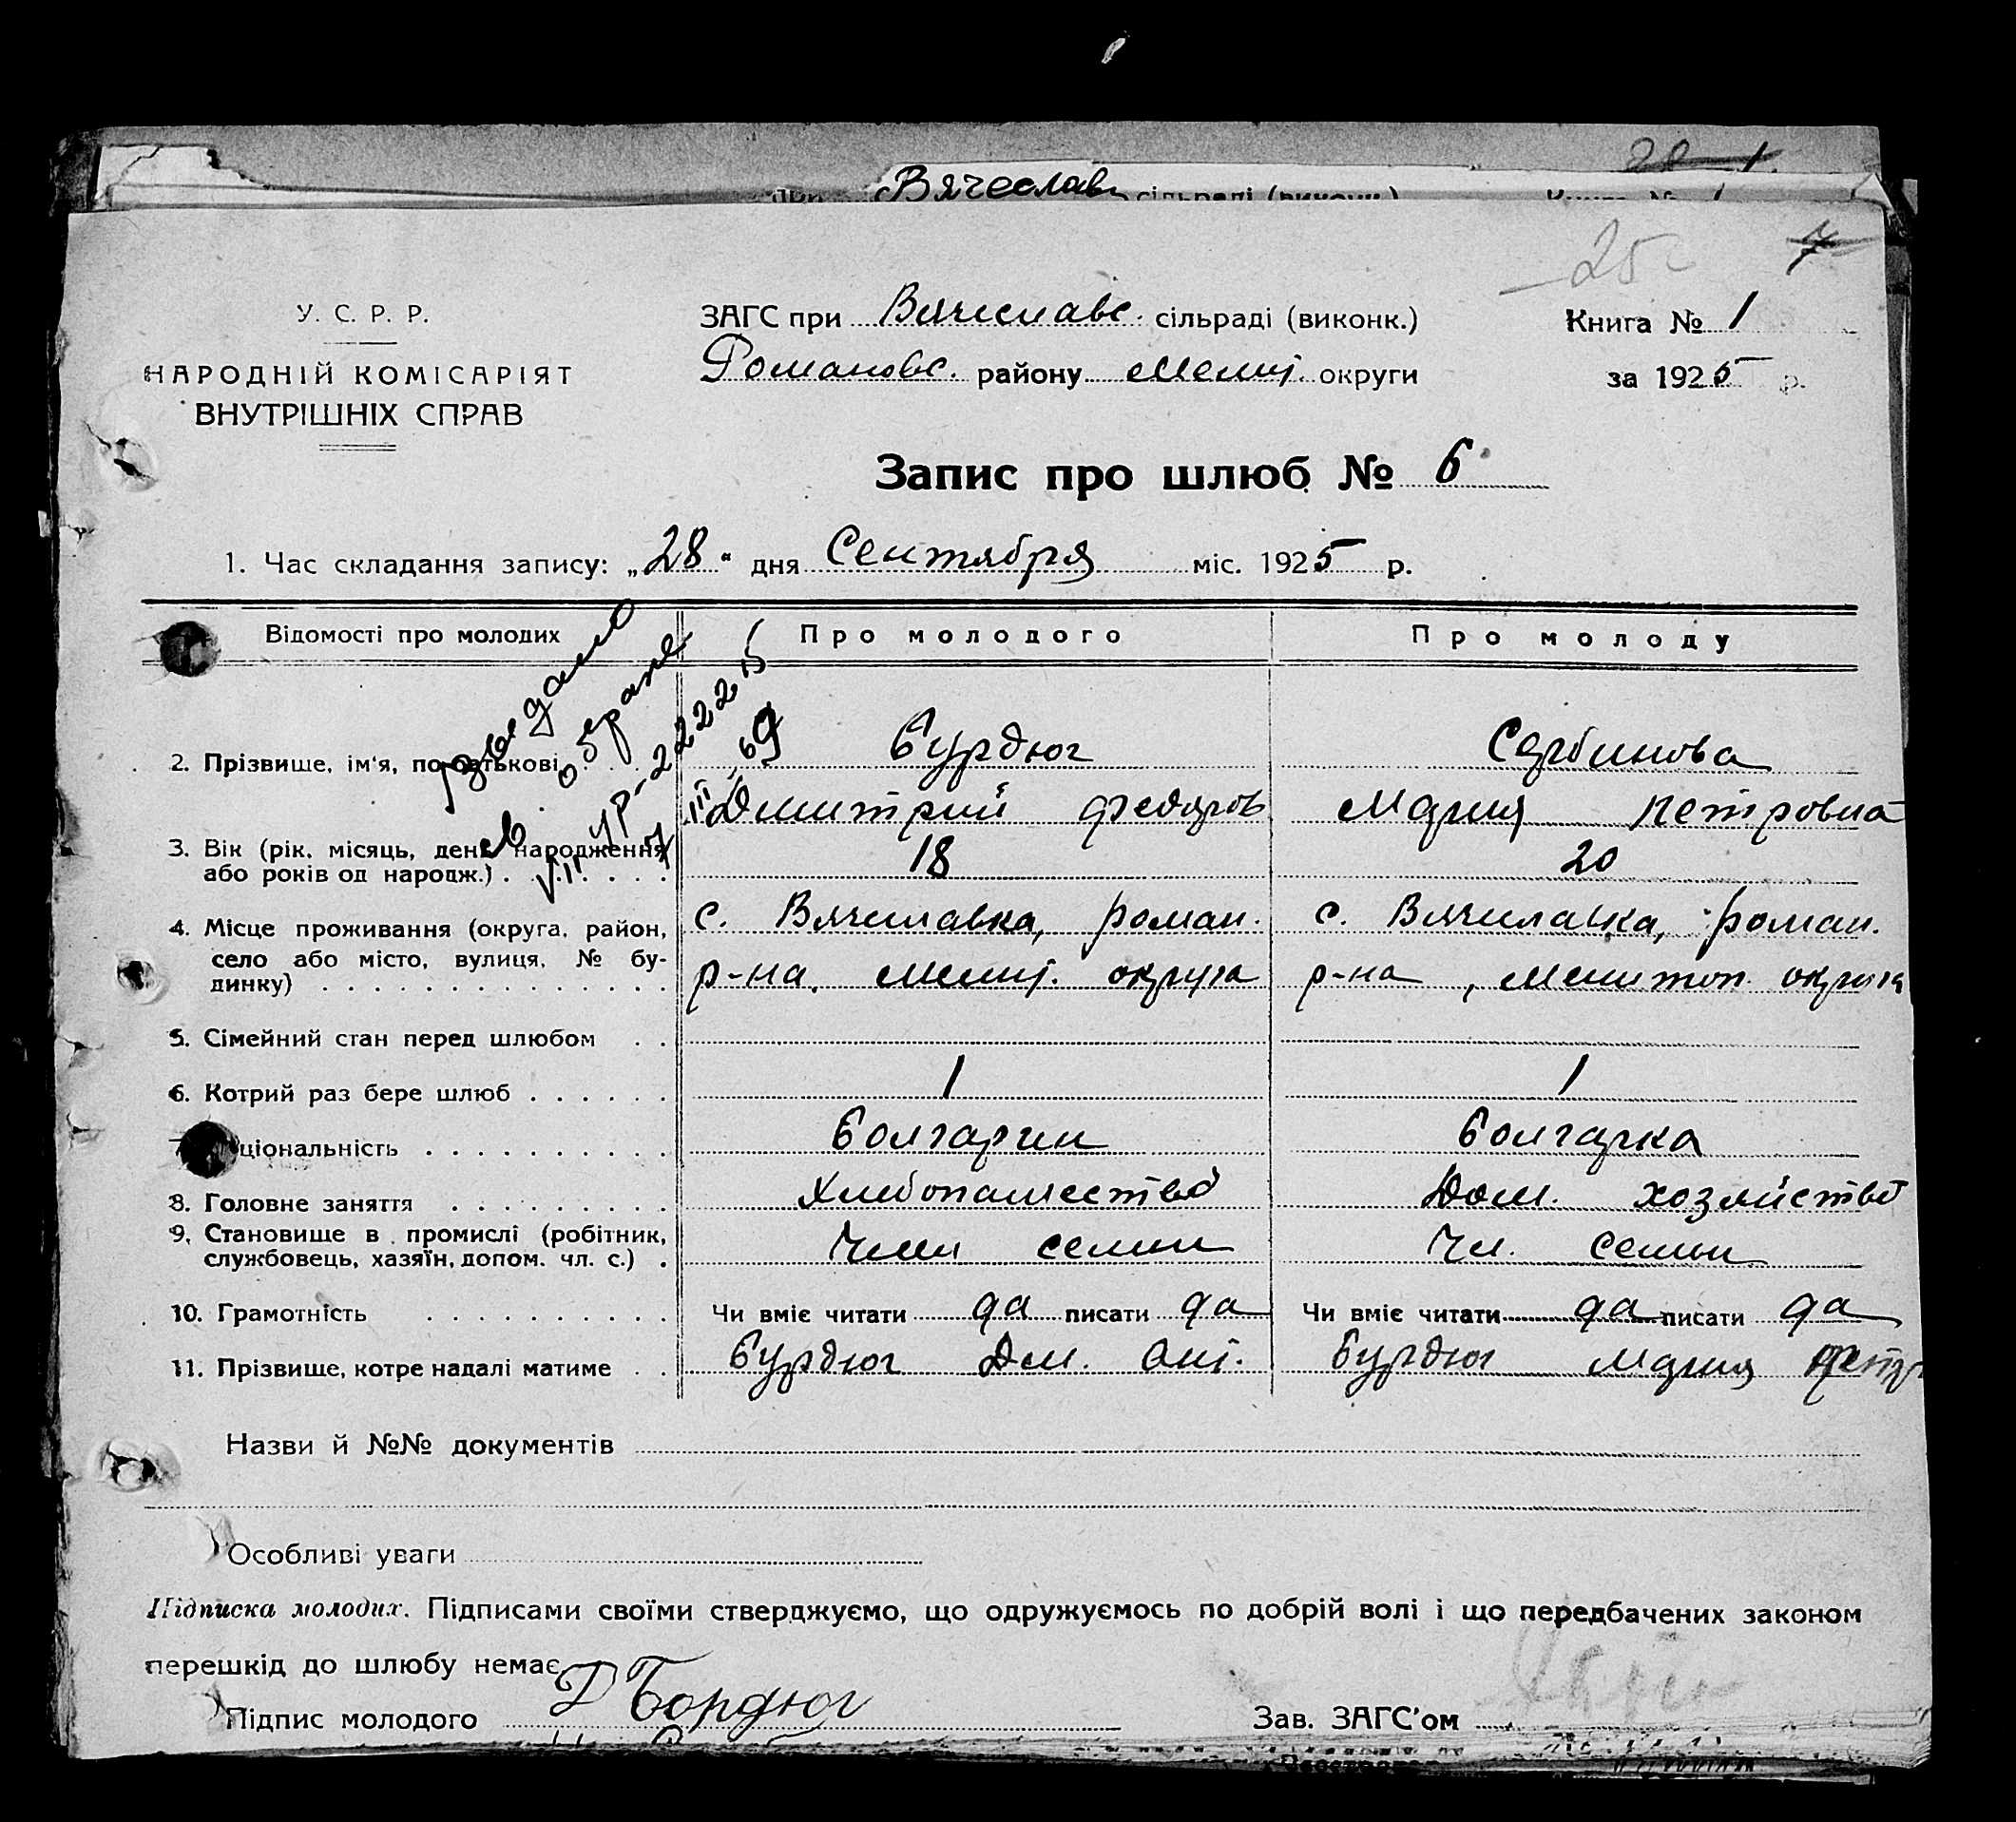 Вячеславс сільраді (виконк.)
25
7
У. С. Р. Р.
НАРОДНІЙ КОМІСАРІЯТ
ВНУТРІШНІХ СПРАВ
ЗАГС при Вячеславс. сільраді (виконк.)
Романовс. району Меліт. округи
Книга № 1
за 1925 р.
Запис про шлюб № 6
1. Час складання запису: „28" дня Сентября міс. 1925 р.
Відомості про молодих Про молодого Про молоду
Выдано
2. Прізвище, ім'я, по батькові Бурдюг Сербинова
Дмитрий Федоров Мария Петровна
3. Вік (рік, місяць, день народження
або років од народж.) 18 20
4. Місце проживання (округа, район, с. Вячеславка, роман. с. Вячеславка, роман.
село або місто, вулиця, № бу-
динку) р-на, Мелит. округа р-на, Мелитоп. округа
5. Сімейний стан перед шлюбом
6. Котрий раз бере шлюб 1 1
7. ціональність Болгарин Болгарка
8. Головне заняття Хлебопашество Дом. хозяйство
9. Становище в промислі (робітник,
службовець, хазяїн, допом. чл. с.) Член семии Чл. семии
10. Грамотність Чи вміє читати да писати да Чи вміє читати да писати да
11. Прізвище, котре надалі матиме Бурдюг Дм. Бурдюг Мария
Назви й №№ документів
Особливі уваги
Підписка молодих. Підписами своїми стверджуємо, що одружуємось по добрій волі і що передбачених законом
перешкід до шлюбу немає
Підпис молодого Д Бордюг Зав. ЗАГС'ом